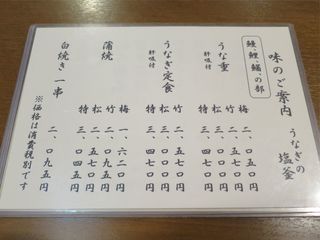 味のご案内
うなぎの塩釜
うな重
肝吸付
梅 二、〇五〇円
竹 二、五七〇円
松 三、〇〇〇円
特 三、四七〇円
うなぎ定食
肝吸付
竹 二、五七〇円
松 三、〇〇〇円
特 三、四七〇円
蒲焼
梅 一、六二〇円
竹 二、〇九五円
松 二、五七〇円
特 三、〇四五円
白焼き一串 二、〇九五円
※価格は消費税別です